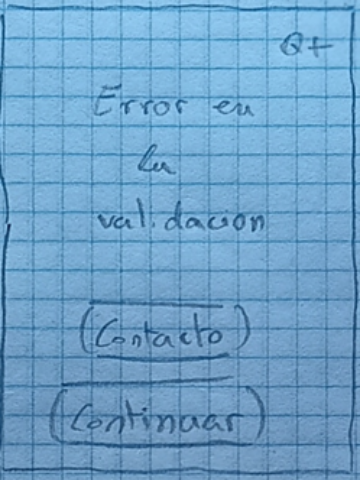 Q+
Error en
la
validacion
Contacto
Continuar